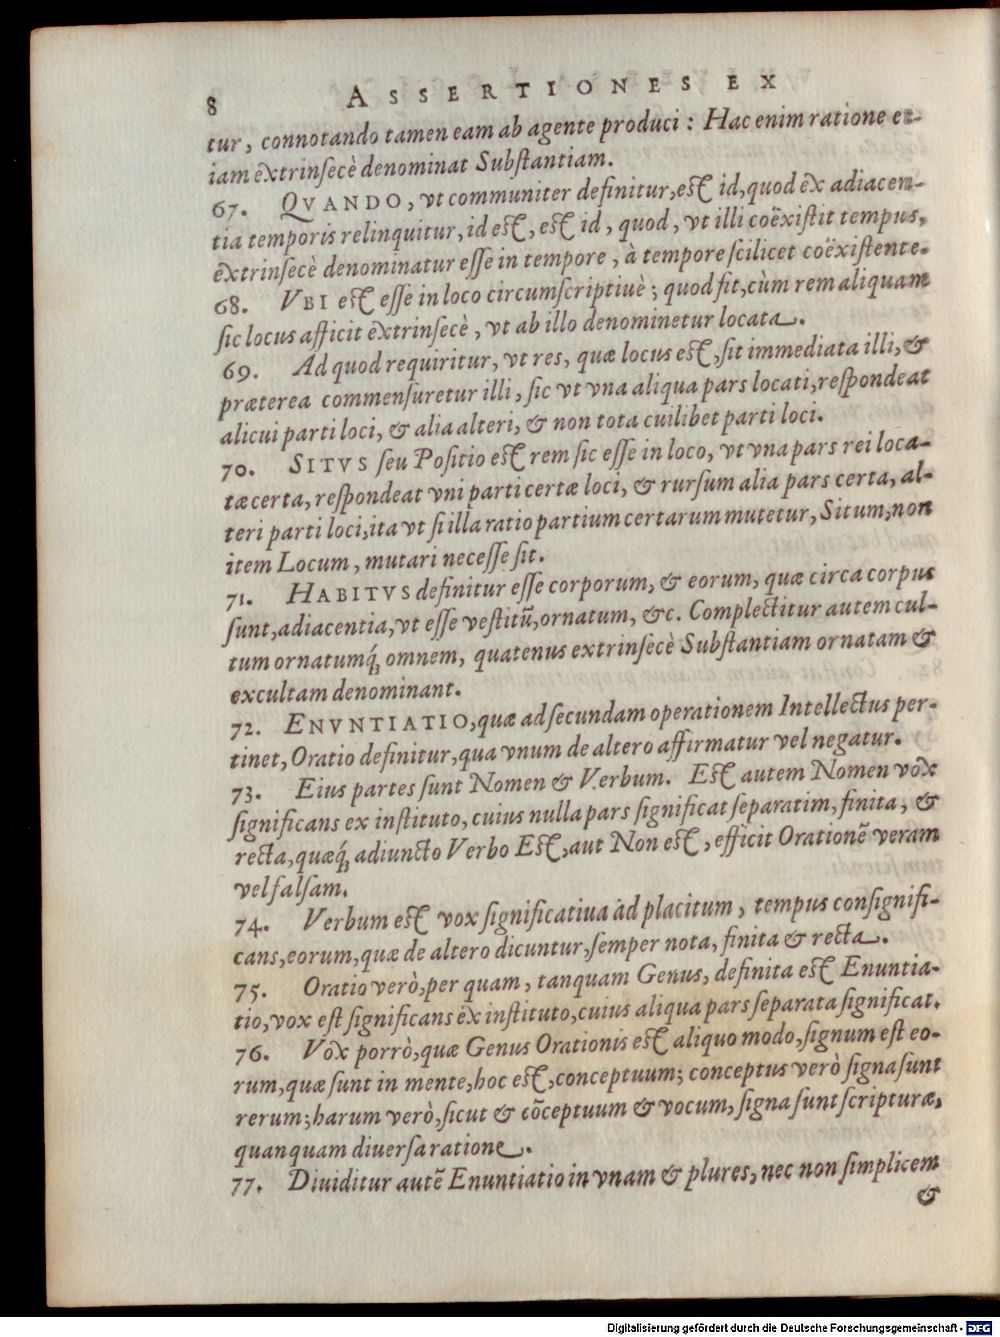 8 ASSERTIONES EX
tur, connotando tamen eam ab agente produci : Hac enim ratione et-
iam extrinsecè denominat Substantiam.
67. QVANDO, vt communiter definitur, est id, quod ex adiacen-
tia temporis relinquitur, id est, est id, quod, vt illi coëxistit tempus,
extrinsecè denominatur esse in tempore, à tempore scilicet coëxistente.
68. VBI est esse in loco circumscriptiuè; quod fit, cùm rem aliquam
sic locus afficit extrinsecè, vt ab illo denominetur locata.
69. Ad quod requiritur, vt res, quæ locus est, sit immediata illi, &
præterea commensuretur illi, sic vt vna aliqua pars locati, respondeat
alicui parti loci, & alia alteri, & non tota cuilibet parti loci.
70. SITVS seu Positio est rem sic esse in loco, vt vna pars rei loca-
tæ certa, respondeat vni parti certæ loci, & rursum alia pars certa, al-
teri parti loci, ita vt si illa ratio partium certarum mutetur, Situm, non
item Locum, mutari necesse sit.
71. HABITVS definitur esse corporum, & eorum, quæ circa corpus
sunt, adiacentia, vt esse vestitũ, ornatum, &c. Complectitur autem cul-
tum ornatumq́; omnem, quatenus extrinsecè Substantiam ornatam &
excultam denominant.
72. ENVNTIATIO, quæ ad secundam operationem Intellectus per-
tinet, Oratio definitur, qua vnum de altero affirmatur vel negatur.
73. Eius partes sunt Nomen & Verbum. Est autem Nomen vox
significans ex instituto, cuius nulla pars significat separatim, finita, &
recta, quæq́; adiuncto Verbo Est, aut Non est, efficit Orationẽ veram
vel falsam.
74. Verbum est vox significatiua ad placitum, tempus consignifi-
cans, eorum, quæ de altero dicuntur, semper nota, finita & recta.
75. Oratio verò, per quam, tanquam Genus, definita est Enuntia-
tio, vox est significans ex instituto, cuius aliqua pars separata significat.
76. Vox porrò, quæ Genus Orationis est aliquo modo, signum est eo-
rum, quæ sunt in mente, hoc est, conceptuum; conceptus verò signa sunt
rerum; harum verò, sicut & cõceptuum & vocum, signa sunt scripturæ,
quanquam diuersa ratione.
77. Diuiditur autẽ Enuntiatio in vnam & plures, nec non simplicem
&
Digitalisierung gefördert durch die Deutsche Forschungsgemeinschaft - DFG